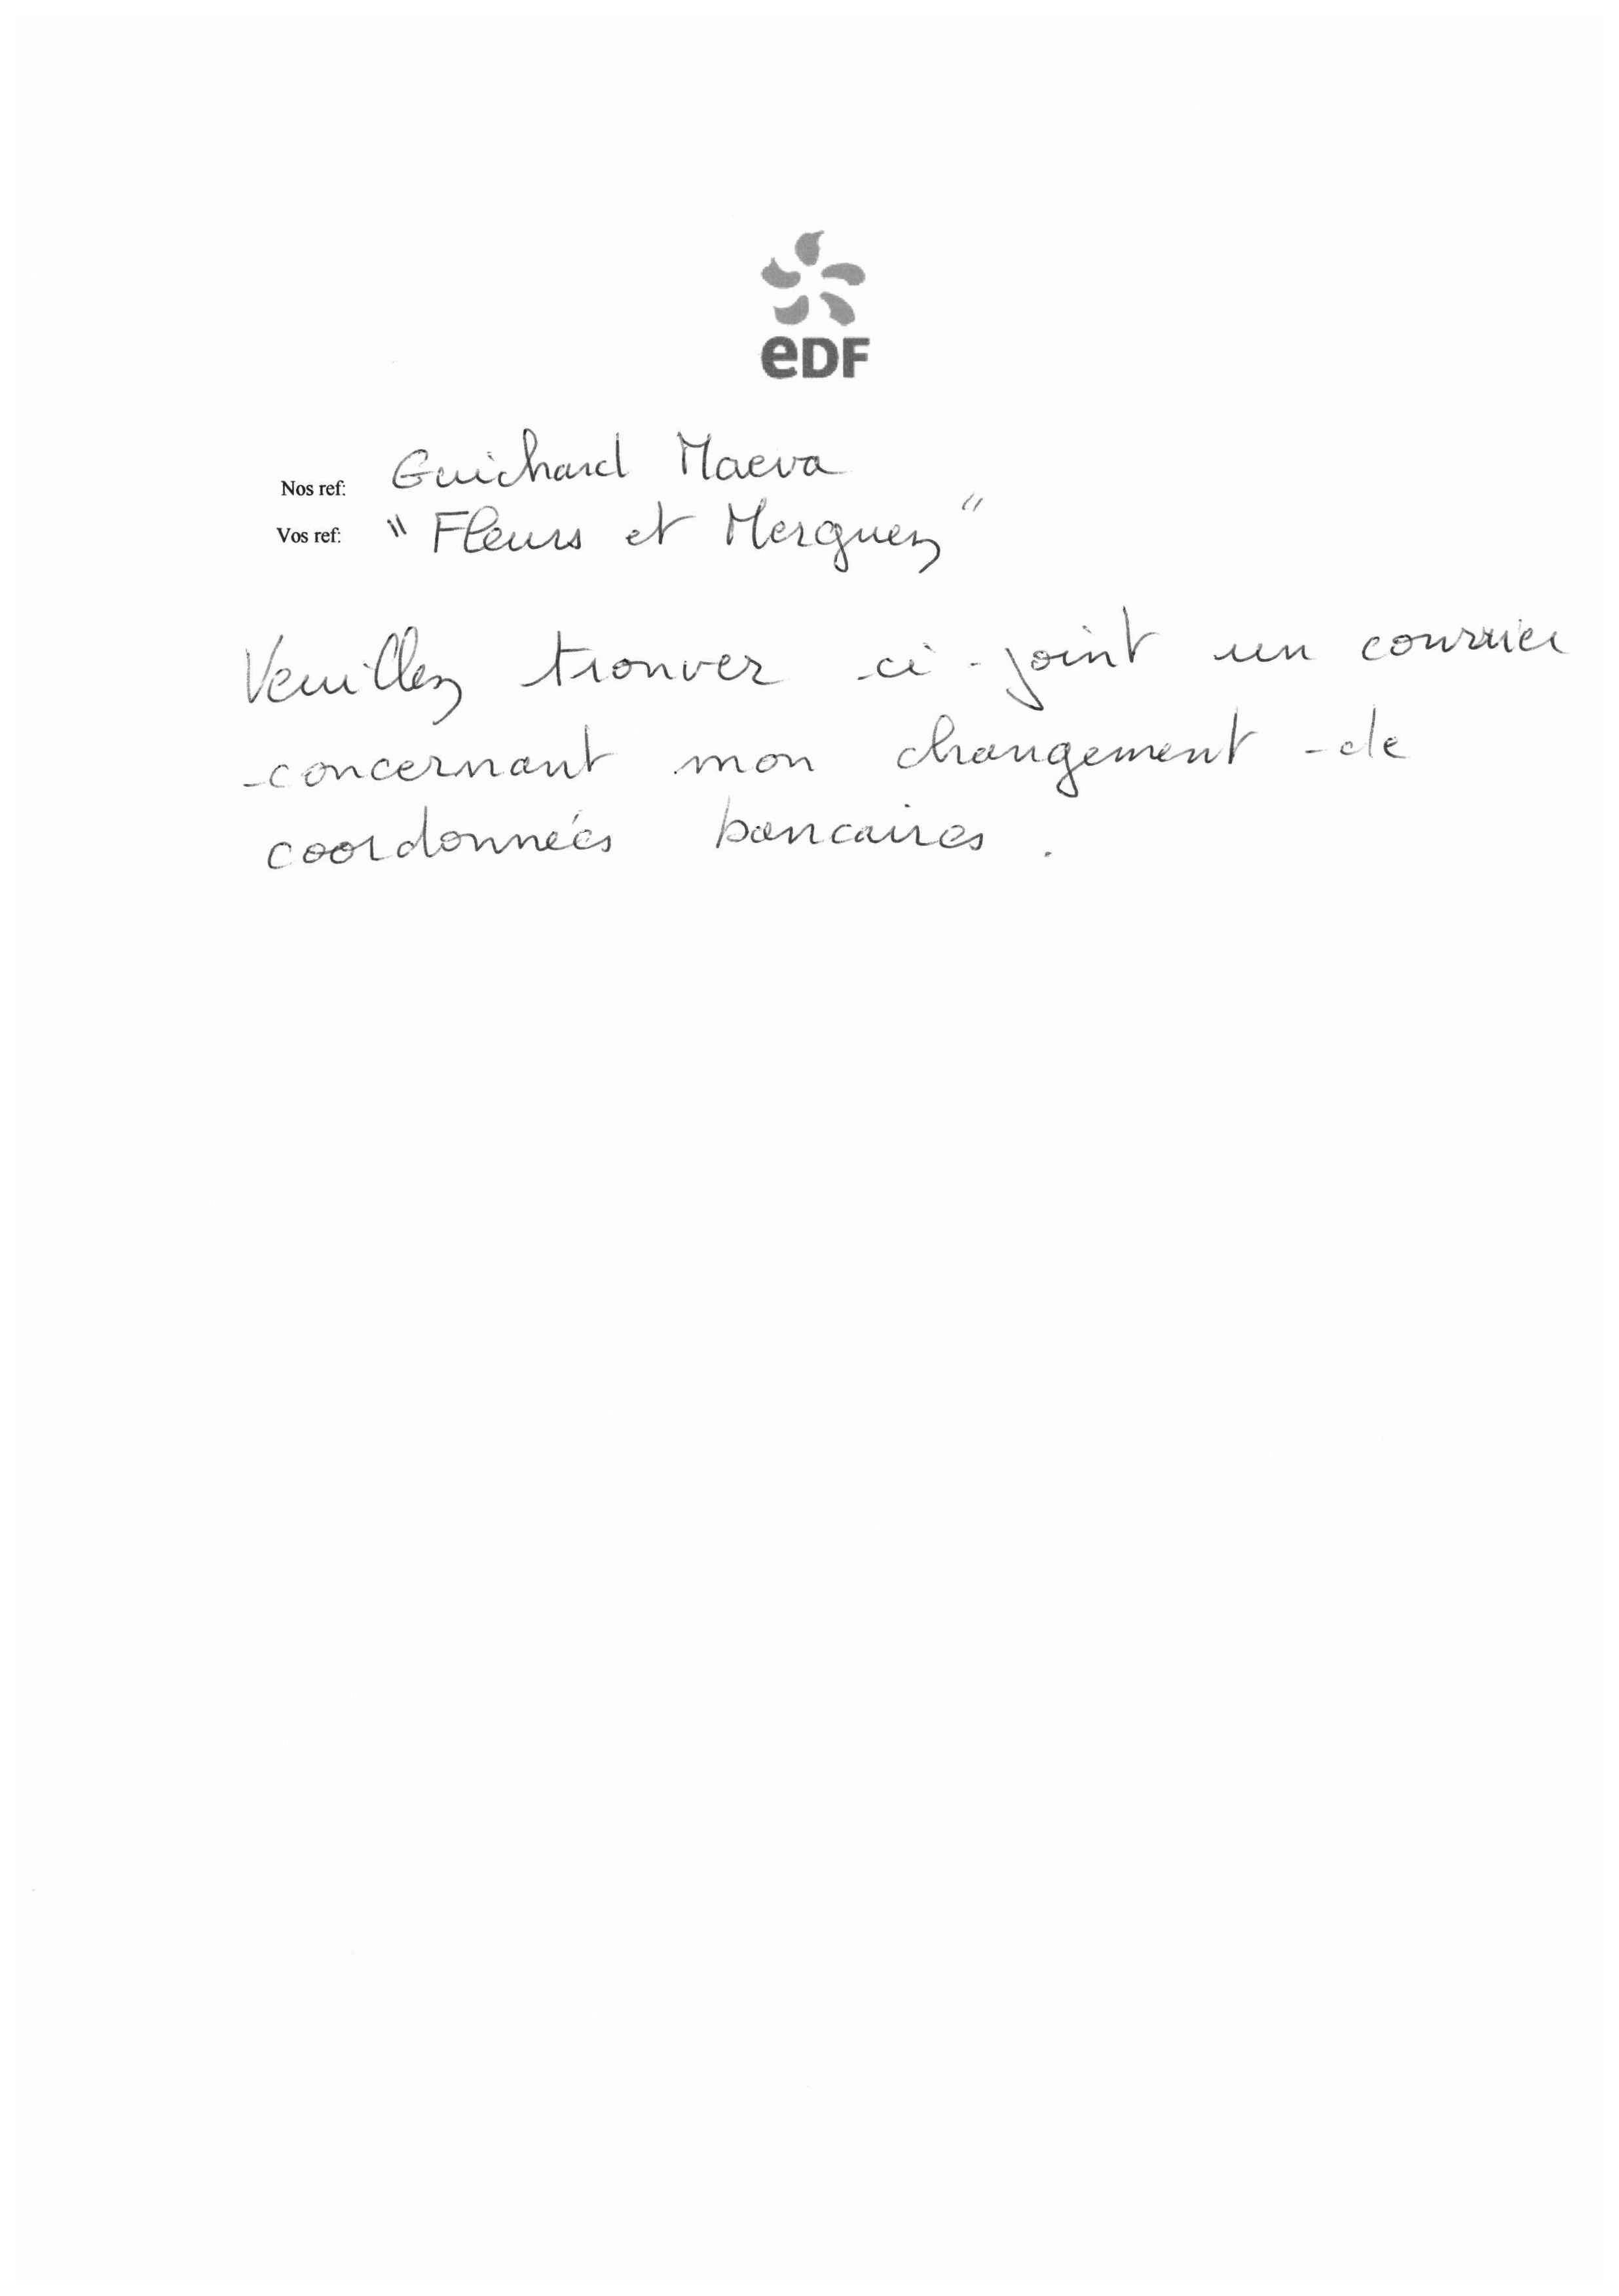 eDF
Nos ref: Guichard Maeva
Vos ref: "Fleurs et Merguez"
Veuillez trouver ci-joint un courrier
concernant mon changement de
coordonnées bancaires.